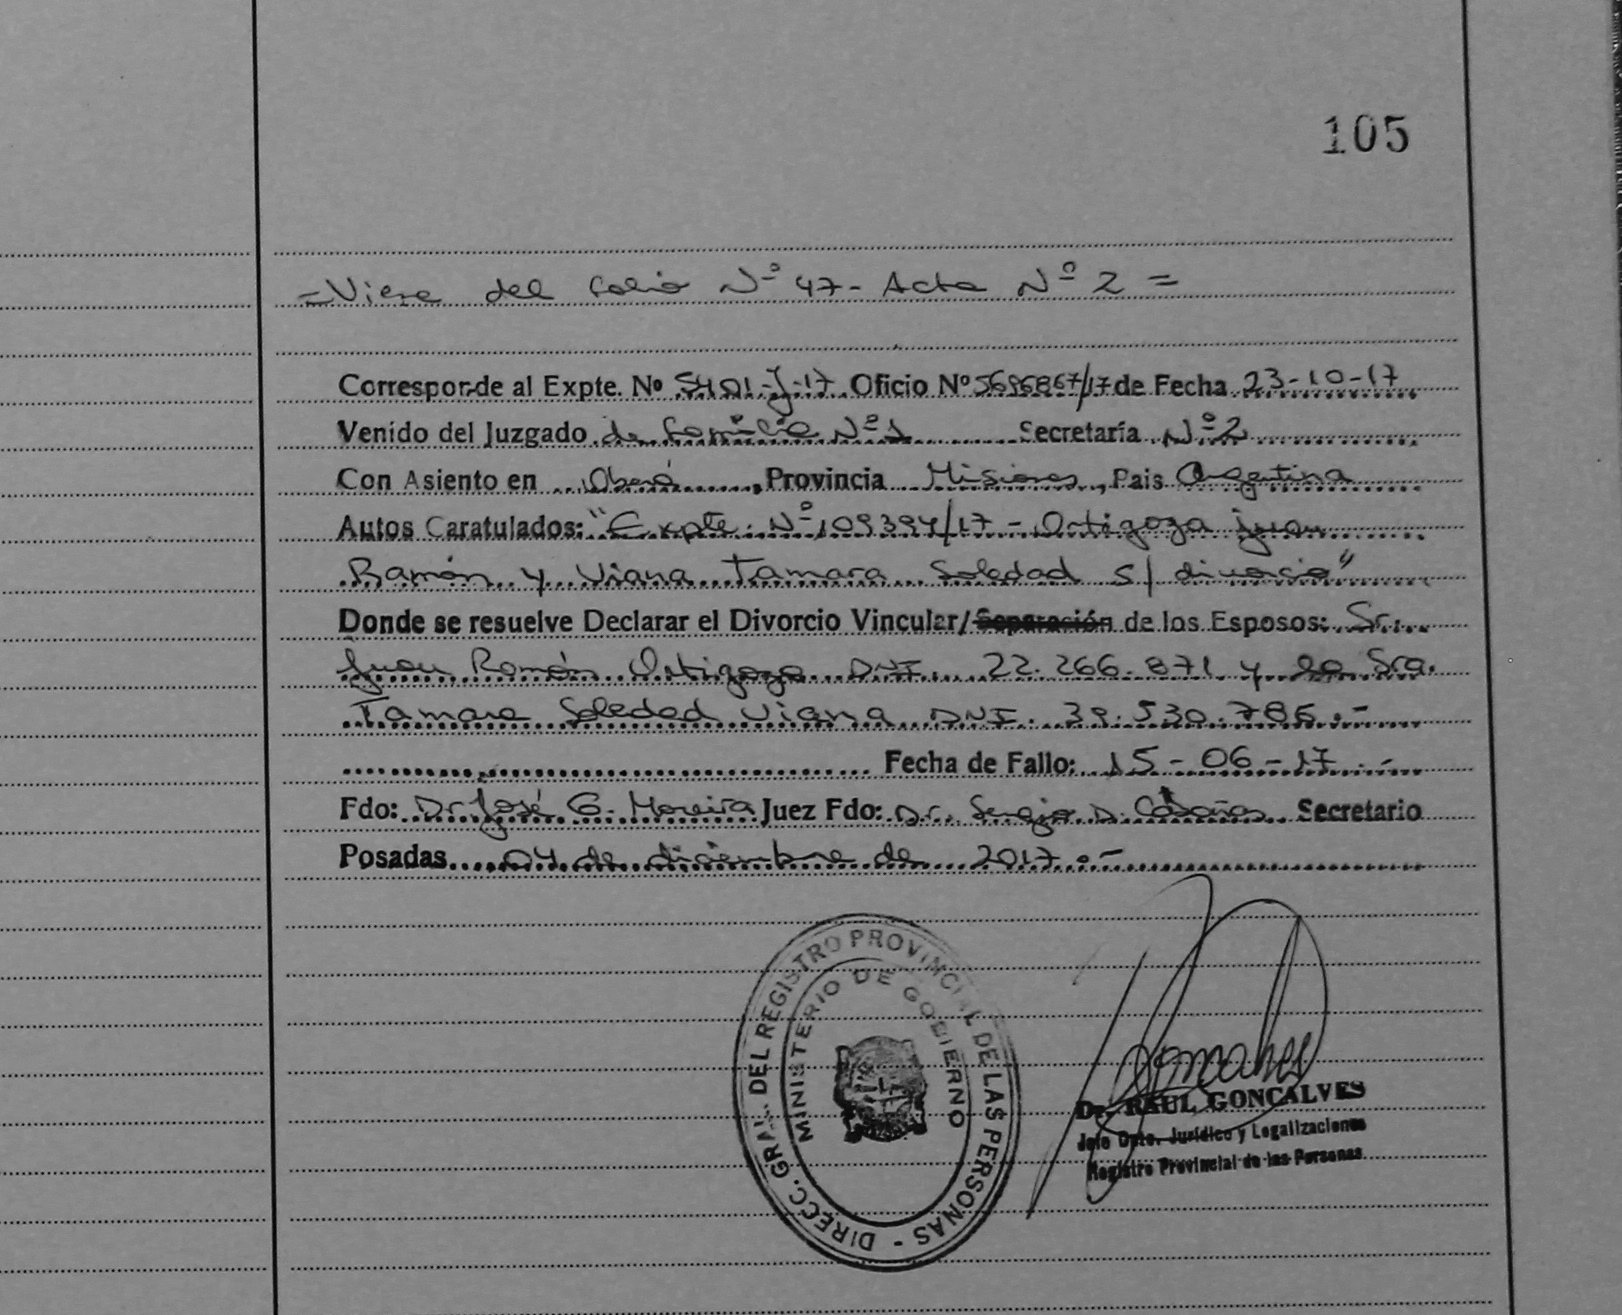 105
=Viene del folio Nº 47- Acta Nº 2 =
Corresponde al Expte. Nº 5401-J-17 Oficio Nº 5696867/17 de Fecha 23-10-17
Venido del Juzgado de familia Nº 1 Secretaría Nº 2
Con Asiento en Oberá, Provincia Misiones, Pais Argentina
Autos Caratulados: "Expte. Nº 109394/17 - Ortigoza Juan
Ramón y Viana Tamara Soledad S/ divorcio"
Donde se resuelve Declarar el Divorcio Vincular/Separación de los Esposos: Sr.
Juan Ramón Ortigoza DNI. 22.266.871 y la Sra.
Tamara Soledad Viana DNI. 39.530.786.-
Fecha de Fallo: 15-06-17.-
Fdo: Dr. José G. Moreira Juez Fdo: Dr. Sergio D. Secretario
Posadas 04 de diciembre de 2017.-
DIRECC. GRAL. DEL REGISTRO PROVINCIAL DE LAS PERSONAS -
MINISTERIO DE GOBIERNO
Dr. RAUL GONCALVES
Jefe Dpto. Jurídico y Legalizaciones
Registro Provincial de las Personas